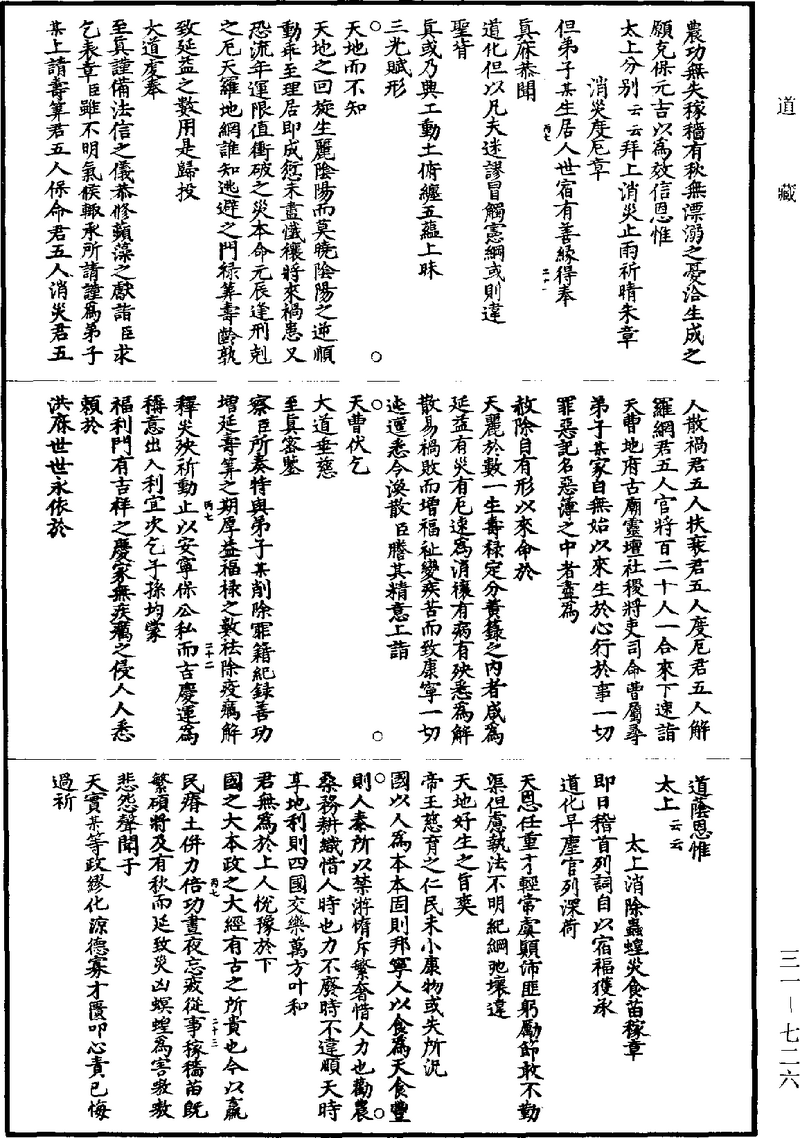 道藏
農功無失稼穡有秋無漂溺之憂洽生成之
願克保元吉以為效信恩惟
太上分別云云拜上消災止雨祈晴朱章
消災度厄章
但弟子某生居人世宿有善緣得奉
丙七
二十一
真庥恭聞
道化但以凡夫迷謬冒觸憲綱或則違
聖背
真或乃興工動土俯纏五蘊上昧
三光賦形
天地而不知
天地之回旋生麗陰陽而莫曉陰陽之逆順
動乖至理居即成愆未盡懺禳將來禍患又
恐流年運限值衝破之災本命元辰逢刑剋
之厄天羅地網誰知逃避之門祿筭壽齡孰
致延益之數用是歸投
大道虔奉
至真謹備法信之儀恭修蘋藻之獻詣臣求
乞表章臣雖不明氣候輒承所請謹為弟子
某上請壽筭君五人保命君五人消災君五
人散禍君五人扶衰君五人度厄君五人解
羅網君五人官將百二十人一合來下速詣
天曹地府古廟靈壇社稷將吏司命曹屬尋
弟子某家自無始以來生於心行於事一切
罪惡記名惡簿之中者盡為
赦除自有形以來命於
天麗於數一生壽祿定分黃籙之內者咸為
延益有災有厄速為消禳有病有殃悉為解
散易禍敗而增福祉變疾苦而致康寧一切
迍邅悉令渙散臣謄其精意上詣
天曹伏乞
大道垂慈
至真密鑒
察臣所奏特與弟子某削除罪籍紀錄善功
增延壽筭之期厚益福祿之數祛除疫癘解
丙七
二十二
釋災殃祈動止以安寧保公私而吉慶運為
稱意出入利宜次乞子孫均蒙
福利門有吉祥之慶家無疾癘之侵人人悉
賴於
洪庥世世永依於
道蔭恩惟
太上云云
太上消除蟲蝗災食苗稼章
即日稽首列詞自以宿福獲承
道化早塵官列深荷
天恩任重才輕常虞顛沛匪躬勵節敢不勤
渠但慮執法不明紀綱弛壞違
天地好生之旨爽
帝王慈育之仁民未小康物或失所況
國以人為本本固則邦寧人以食為天食豐
則人泰所以禁游惰斥繁奢惜人力也勸農
桑務耕織惜人時也力不廢時不違順天時
享地利則四國交樂萬方叶和
君無為於上人悅豫於下
國之大本政之大經有古之所貴也今以贏
丙七
二十三
民瘠土併力倍功晝夜忘疲從事稼穡苗既
繁碩將及有秋而延致災凶螟蝗為害嗷嗷
悲怨聲聞于
天實某等政繆化涼德寡才匱叩心責己悔
過祈
三一—七二六